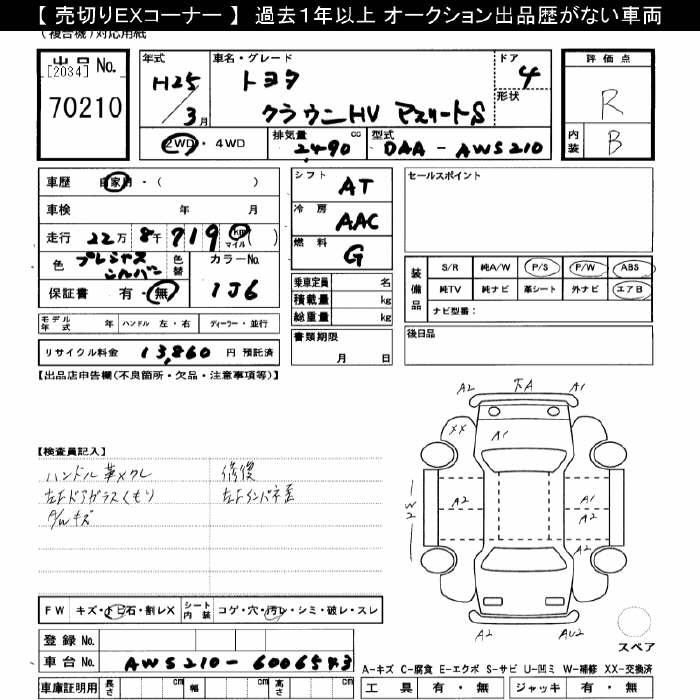 【 売切りEXコーナー 】 過去1年以上 オークション出品歴がない車両
(複合機)対応用紙
出品 No.
[2034]
70210
年式
H25
/
3月
車名・グレード
トヨタ
クラウンHV アスリートS
ドア
4
形状
2WD・4WD
排気量 cc
2490
型式
DAA - AWS210
評価点
R
内装
B
車歴 自家用・( )
車検 年 月
走行 22万 8千 719 km マイル ( )
色 プレシャスシルバー
色替
カラーNo.
1J6
保証書 有・無
シフト
AT
冷房
AAC
燃料
G
乗車定員 名
積載量 kg
総重量 kg
書類期限
月 日
セールスポイント
装備品
S/R 純A/W P/S P/W ABS
純TV 純ナビ 革シート 外ナビ エアB
ナビ型番:
後日品
モデル年式 年 ハンドル 左・右 ディーラー・並行
リサイクル料金 13,860 円 預託済
【出品店申告欄(不良箇所・欠品・注意事項等)】
【検査員記入】
ハンドル革メクレ
左Fドアガラスくもり
P/Wキズ
修復
左Fインパネ歪
A2
下A
A1
XX
A1
W2
A2
A1
A2
A2
A2
AU2
スペア
FW キズ・トビ石・割レX
シート内装 コゲ・穴・汚レ・シミ・破レ・スレ
登録 No.
車台 No. AWS210-6006543
車庫証明用 長さ cm 幅 cm 高さ cm
A-キズ C-腐食 E-エクボ S-サビ U-凹ミ W-補修 XX-交換済
工具 有・無 ジャッキ 有・無